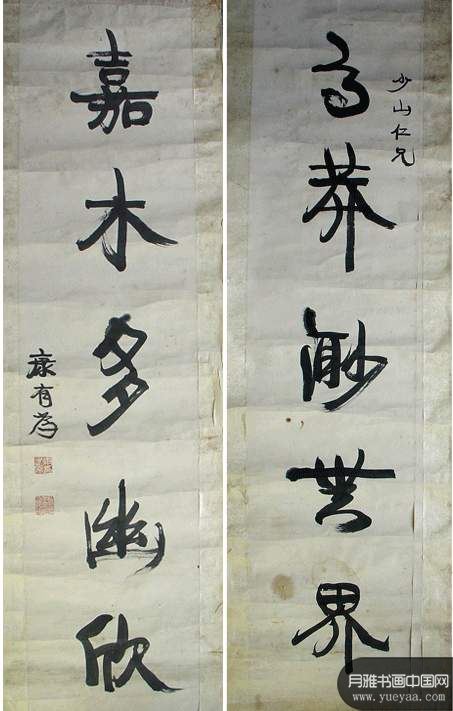 少山仁兄
高莽眇無界
嘉木多幽欣
康有為
月雅书画中国网
www.yueyaa.com